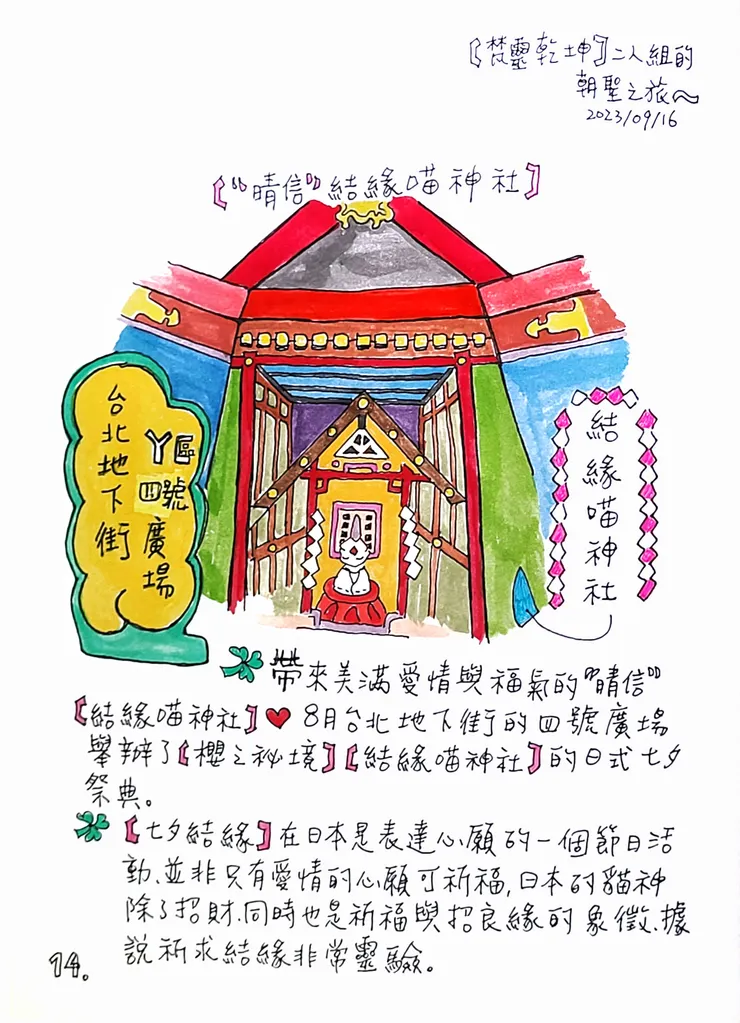 【梵靈乾坤】二人組的
朝聖之旅～
2023/09/16
【“晴信”結緣喵神社】
台北地下街
Y區
四號
廣場
結緣喵神社
帶來美滿愛情與福氣的“晴信”
【結緣喵神社】♥8月台北地下街的四號廣場
舉辦了【櫻之祕境】【結緣喵神社】的日式七夕
祭典。
【七夕結緣】在日本是表達心願的一個節日活
動、並非只有愛情的心願可祈福,日本的貓神
除了招財、同時也是祈福與招良緣的象徵、據
說祈求結緣非常靈驗。
14.